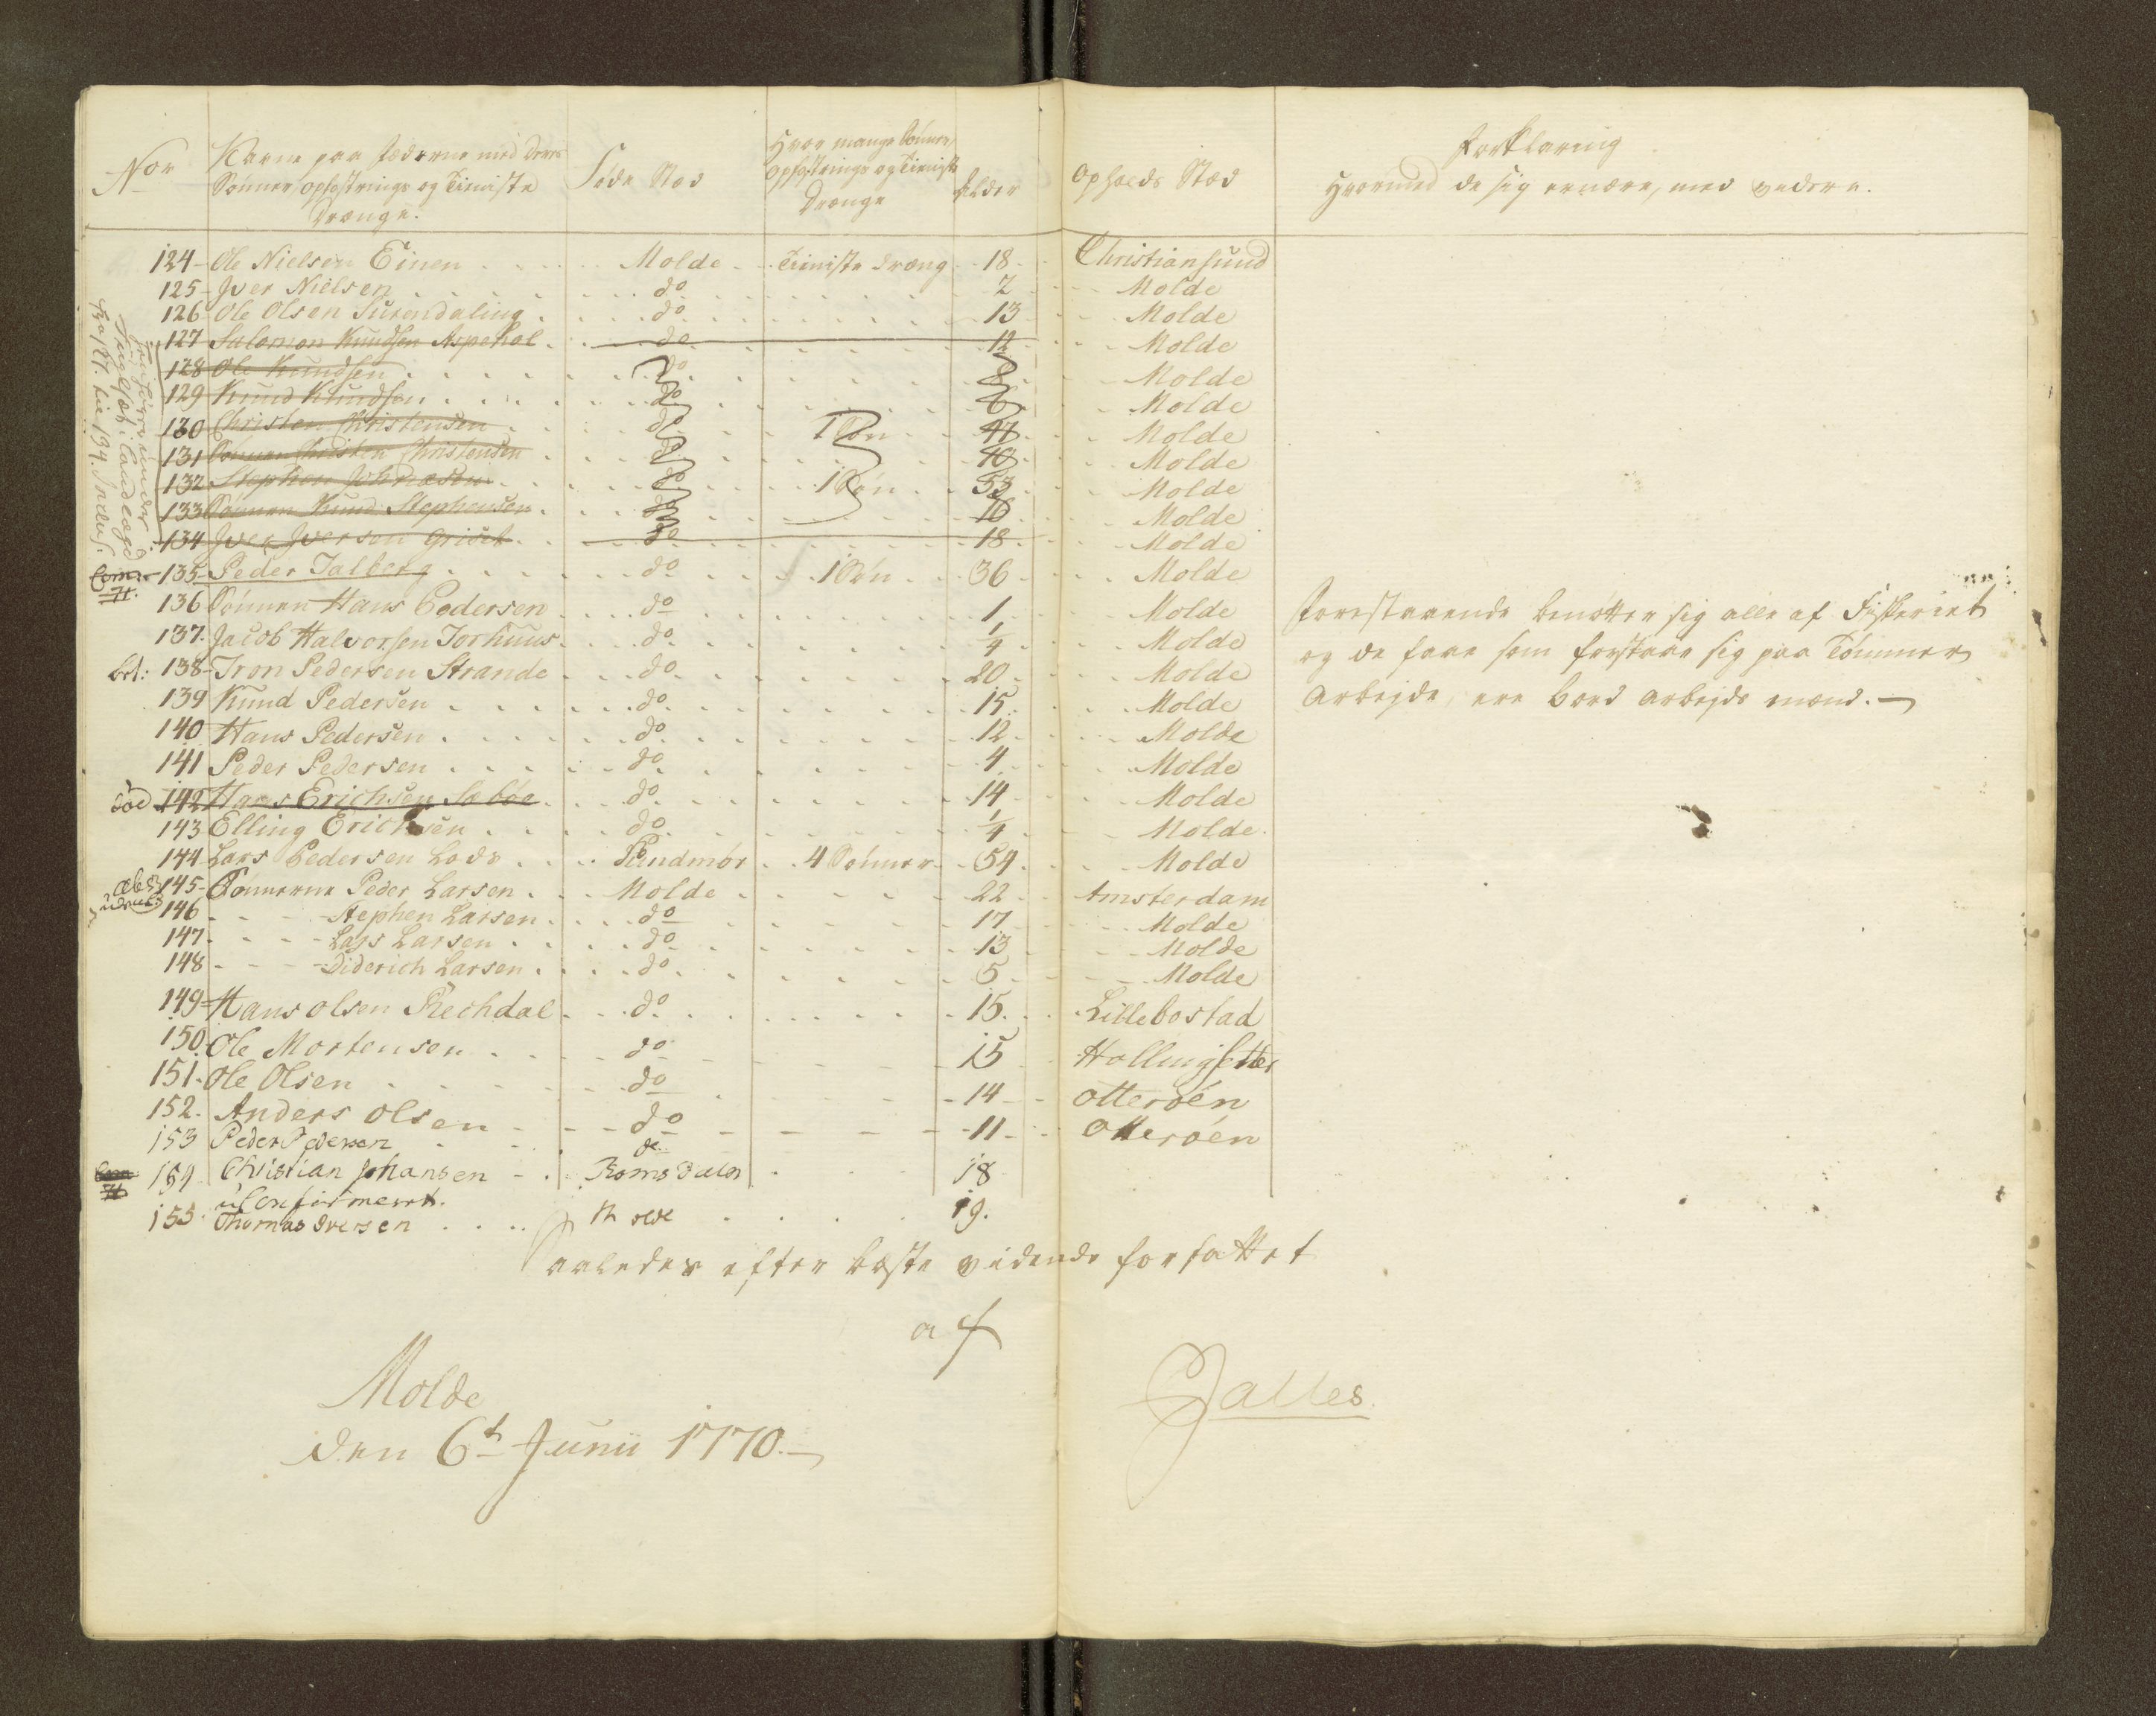 Nor
Navne paa Fæderne med deres
Sönner, opfostrings og Tieniste
Drænge.
Föde Stæd
Hvor mange Sönner,
opfostrings og Tieniste
Drænge
Alder
Opholds Stæd
Forklaring
Hvormed de sig ernære, med videre.
124 Ole Nielsen Einen Molde Tieniste dræng 18 Christiansund
125 Jver Nielsen do 2 Molde
126 Ole Olsen Surendaling do 13 Molde
127 Salomon Knudsen Aspehol do 12 Molde
128 Ole Knudsen do 8 Molde
129 Knud Knudsen do 6 Molde
130 Christen Christensen do 1 Sön 47 Molde
131 Sönnen Christen Christensen do 10 Molde
132 Stephen do 1 Sön 53 Molde
133 Sönnen Knud Stephensen do 16 Molde
134 Jver Jversen Griset do 18 Molde
135 Peder Talberg do 1 Sön 36 Molde
136 Sönnen Hans Pedersen do 1 Molde
137. Jacob Halvorsen Torhuus do 1/4 Molde
138 Tron Pedersen Strande do 20 Molde
139 Knud Pedersen do 15 Molde
140 Hans Pedersen do 12 Molde
141 Peder Pedersen do 4 Molde
död 142 Hans Erichsen Sæböe do 14 Molde
143 Elling Erichsen do 1/4 Molde
144 Lars Pedersen Lods Sundmör 4 Sönner 54 Molde
145 Sönnerne Peder Larsen Molde 22 Amsterdam
146 Stephen Larsen do 17 Molde
147 Lars Larsen do 13 Molde
148 Diderich Larsen do 5 Molde
149 Hans Olsen Rechdal do 15 Lillebostad
150 Ole Mortensen do 15 Hollingsetter
151 Ole Olsen do 14 Otteröen
152. Anders Olsen do 11 Otteröen
153 Peder Pedersen do
154 Christian Johansen Romsdalen 18
uConfirmeret.
155 Thomas Iversen Molde 19.
Forestaaende benötter sig alle af Fiskeriet
og de faae som forstaae sig paa Tömmer
Arbejde, ere Bord Arbejds mænd.
Saaledes efter beste vidende forfattet
af
Molde
den 6t Junii 1770.
Jalles.